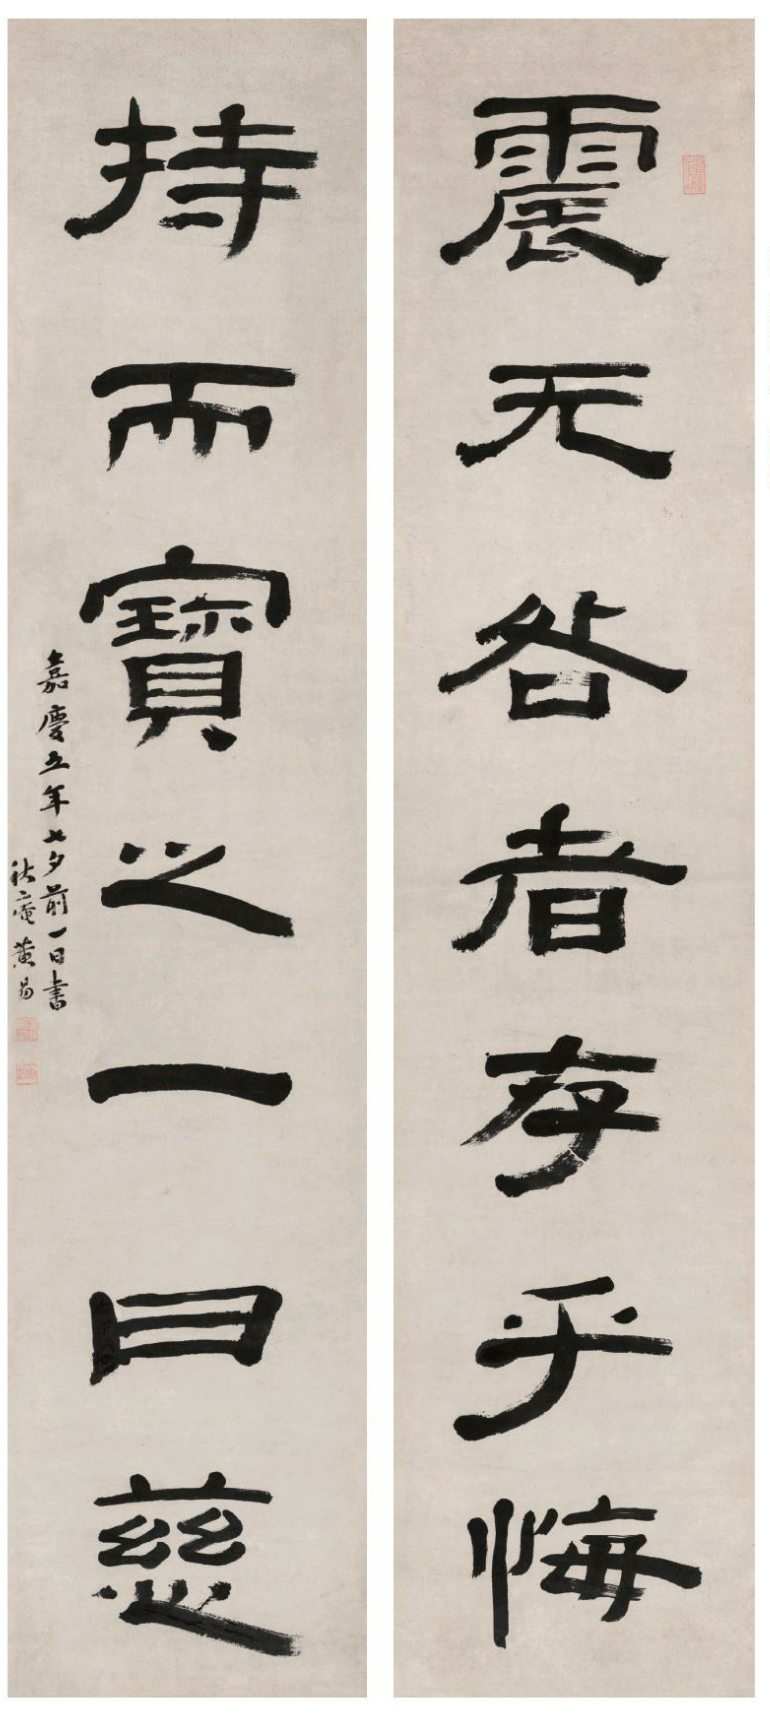 震无咎者存乎悔
持而寶之一曰慈
嘉慶五年七夕前一日書
秋盦黃易